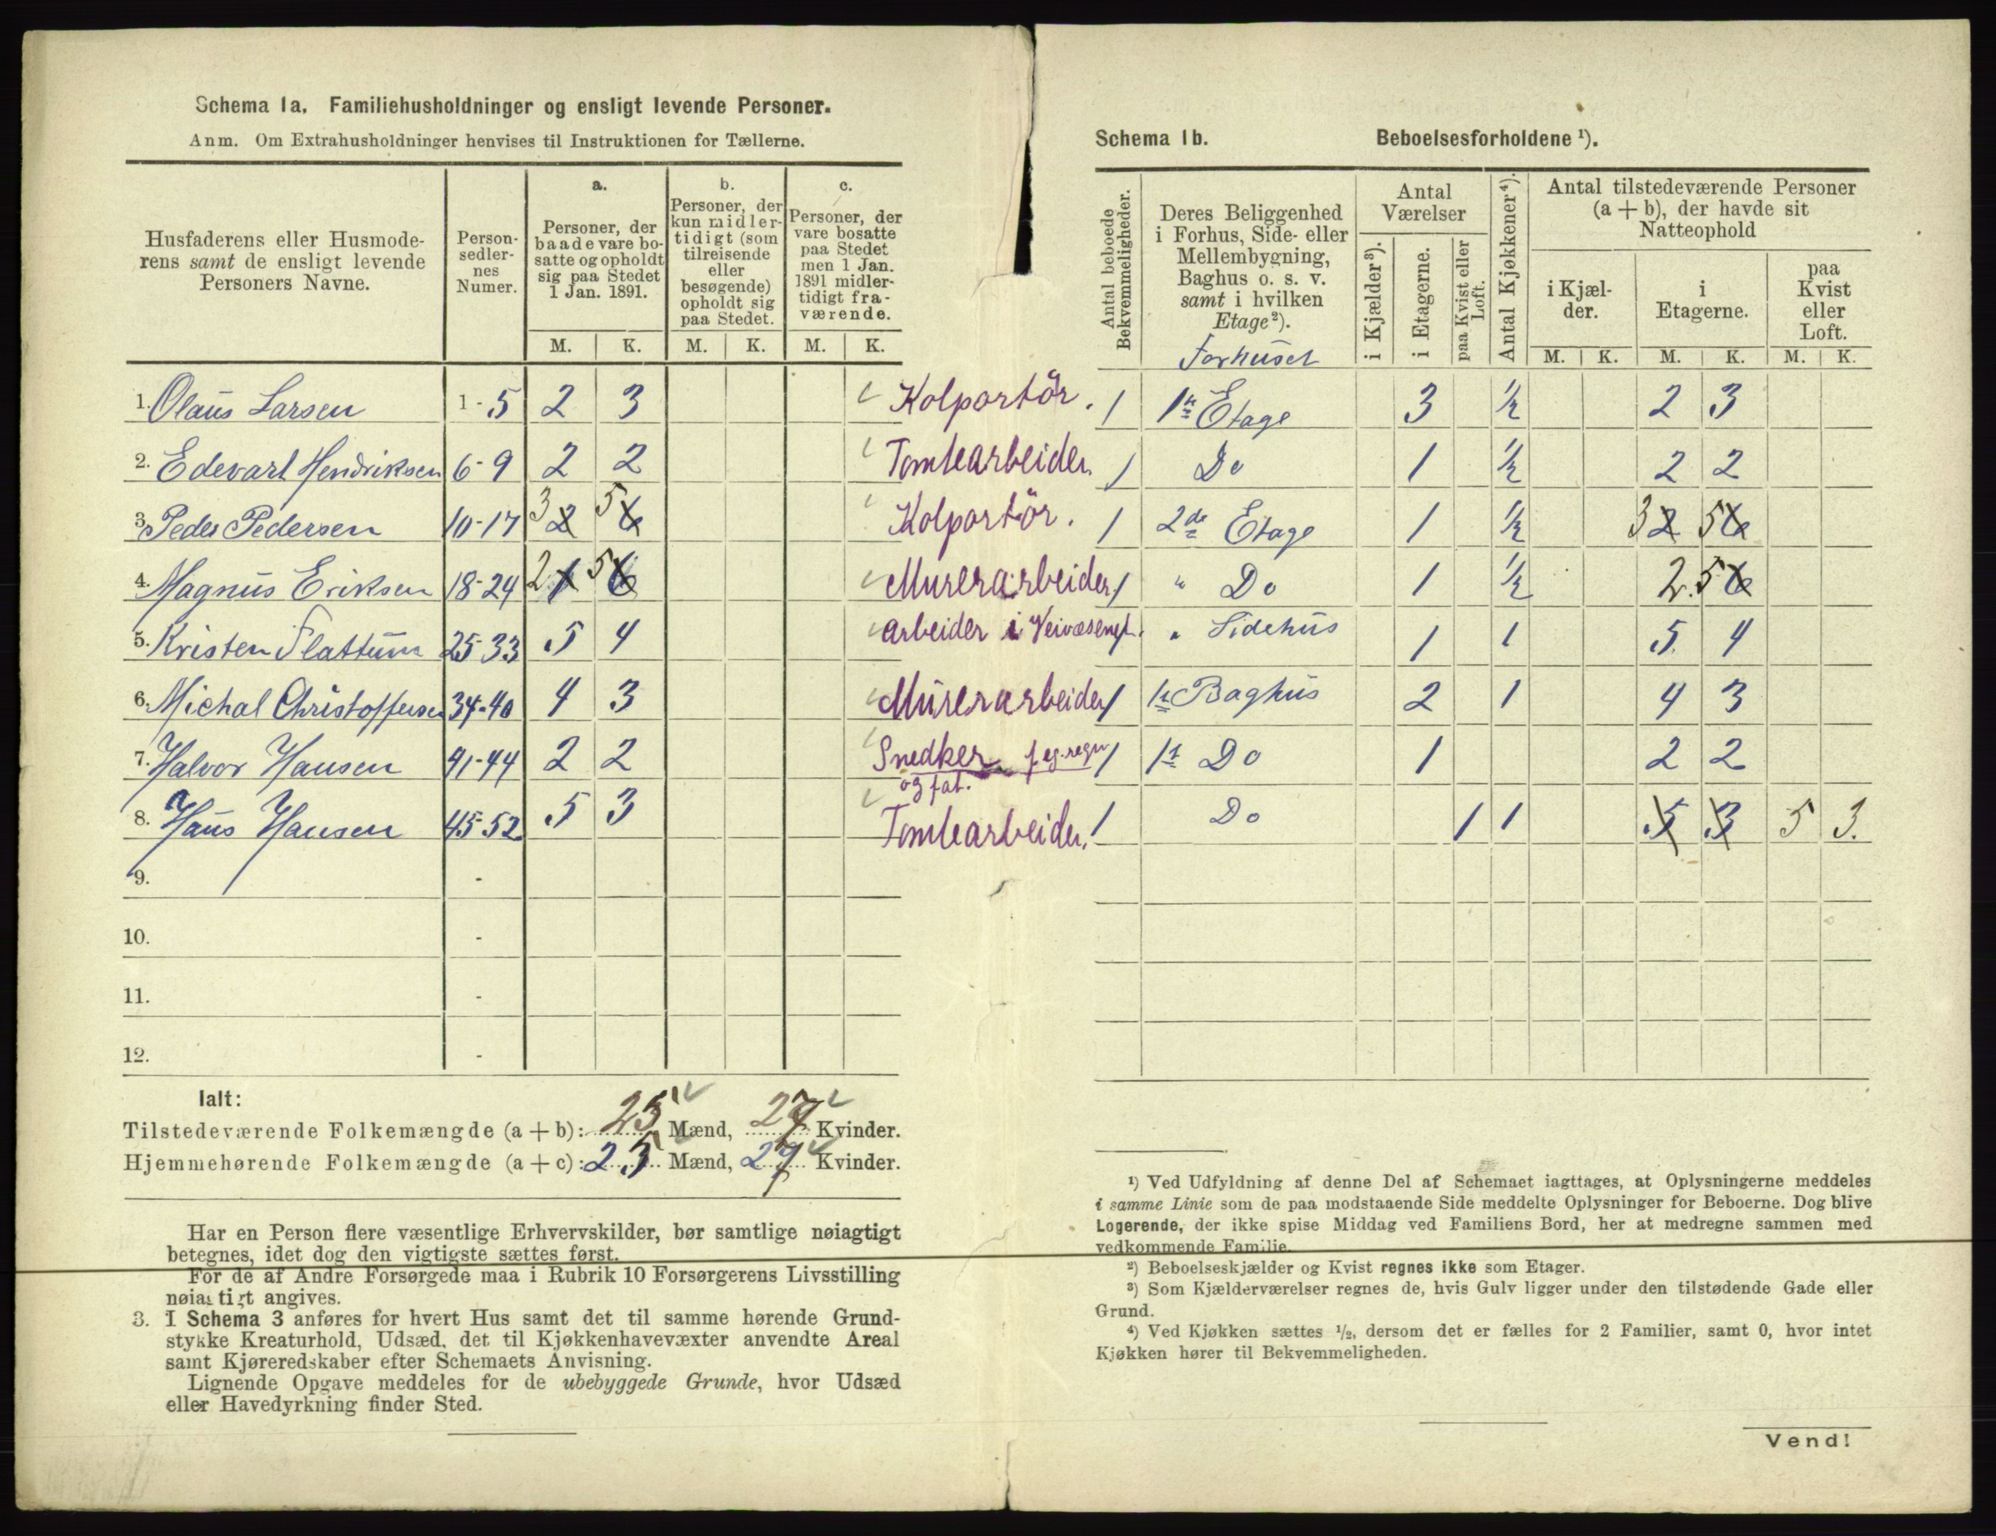 Schema 1a. Familiehusholdninger og ensligt levende Personer.
Anm. Om Extrahusholdninger henvises til Instruktionen for Tællerne.
Husfaderens eller Husmoderens samt de ensligt levende Personers Navne.
Person-sedlernes Numer.
a.
Personer, der baade vare bosatte og opholdt sig paa Stedet 1 Jan. 1891.
b.
Personer, der kun midlertidigt (som tilreisende eller besøgende) opholdt sig paa Stedet.
c.
Personer, der vare bosatte paa Stedet men 1 Jan. 1891 midlertidigt fraværende.
M. K. M. K. M. K.
1. Olaus Larsen 1-5 2 3 Kolportör.
2. Edevart Hendriksen 6-9 2 2 Tomtearbeider
3. Peder Pedersen 10-17 3 2 5 6 Kolportör.
4. Magnus Eriksen 18-24 2 1 5 6 Murerarbeider
5. Kristen Flattum 25-33 5 4 arbeider i Veivæsenet.
6. Michal Christoffersen 34-40 4 3 Murerarbeider
7. Halvor Hansen 41-44 2 2 Snedker f. eg. regn
og fat.
8. Hans Hansen 45-52 5 3 Tomtearbeider.
9. -
10. -
11. -
12. -
Ialt:
Tilstedeværende Folkemængde (a + b): 25 Mænd, 27 Kvinder.
Hjemmehørende Folkemængde (a + c): 25 Mænd, 27 Kvinder.
Har en Person flere væsentlige Erhvervskilder, bør samtlige nøiagtigt
betegnes, idet dog den vigtigste sættes først.
For de af Andre Forsørgede maa i Rubrik 10 Forsørgerens Livsstilling
nøiagtigt angives.
3. I Schema 3 anføres for hvert Hus samt det til samme hørende Grund-
stykke Kreaturhold, Udsæd, det til Kjøkkenhavevæxter anvendte Areal
samt Kjøreredskaber efter Schemaets Anvisning.
Lignende Opgave meddeles for de ubebyggede Grunde, hvor Udsæd
eller Havedyrkning finder Sted.
Schema 1b. Beboelsesforholdene ¹).
Antal beboede Bekvemmeligheder.
Deres Beliggenhed i Forhus, Side- eller Mellembygning, Baghus o. s. v. samt i hvilken Etage²).
Forhuset
Antal Værelser
i Kjælder³).
i Etagerne.
paa Kvist eller Loft.
Antal Kjøkkener⁴).
Antal tilstedeværende Personer (a + b), der havde sit Natteophold
i Kjælder.
i Etagerne.
paa Kvist eller Loft.
M. K. M. K. M. K.
1 1ste Etage 3 ½ 2 3
1 Do 1 ½ 2 2
1 2de Etage 1 ½ 3 2 5 6
1 " Do 1 ½ 2. 5 6
" Sidehus 1 1 5 4
1 1ste Baghus 2 1 4 3
1 1ste Do 1 2 2
1 Do 1 1 5 3 5 3.
¹) Ved Udfyldning af denne Del af Schemaet iagttages, at Oplysningerne meddeles
i samme Linie som de paa modstaaende Side meddelte Oplysninger for Beboerne. Dog blive
Logerende, der ikke spise Middag ved Familiens Bord, her at medregne sammen med
vedkommende Familie.
²) Beboelseskjælder og Kvist regnes ikke som Etager.
³) Som Kjælderværelser regnes de, hvis Gulv ligger under den tilstødende Gade eller
Grund.
⁴) Ved Kjøkken sættes ½, dersom det er fælles for 2 Familier, samt 0, hvor intet
Kjøkken hører til Bekvemmeligheden.
Vend!